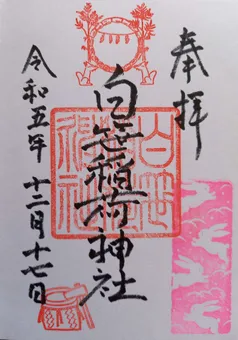 奉拝
白笹稲荷神社
令和五年 十二月十七日